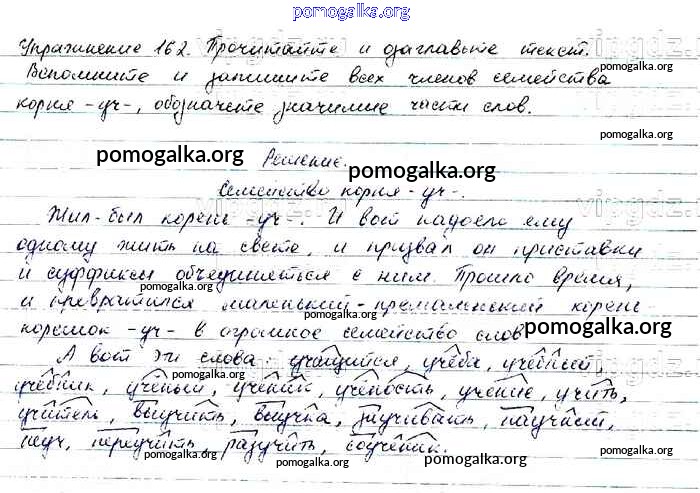 pomogalka.org
Упражнение 162. Прочитайте и озаглавьте текст.
pomogalka.org
Вспомните и запишите всех членов семейства
pomogalka.org
корня -уч-, обозначьте значимые части слов.
pomogalka.org
Решение.
pomogalka.org
pomogalka.org
Семейство корня -уч-.
vipgdz.ru
Жил-был корень -уч-. И вот надоело ему
pomogalka.org
одному жить на свете, и призвал он приставки
и суффиксы объединяться с ним. Прошло время,
pomogalka.org
pomogalka.org
и превратился маленький-премаленький корень-
корешок -уч- в огромное семейство слов.
pomogalka.org
А вот эти слова: учащийся, учёба, учебный
pomogalka.org
учебник, учёный, ученик, учёность, учение, учить,
учитель, выучить, выучка, заучивать, научный,
неуч, переучить, разучить, соученик.
pomogalka.org
pomogalka.org
pomogalka.org